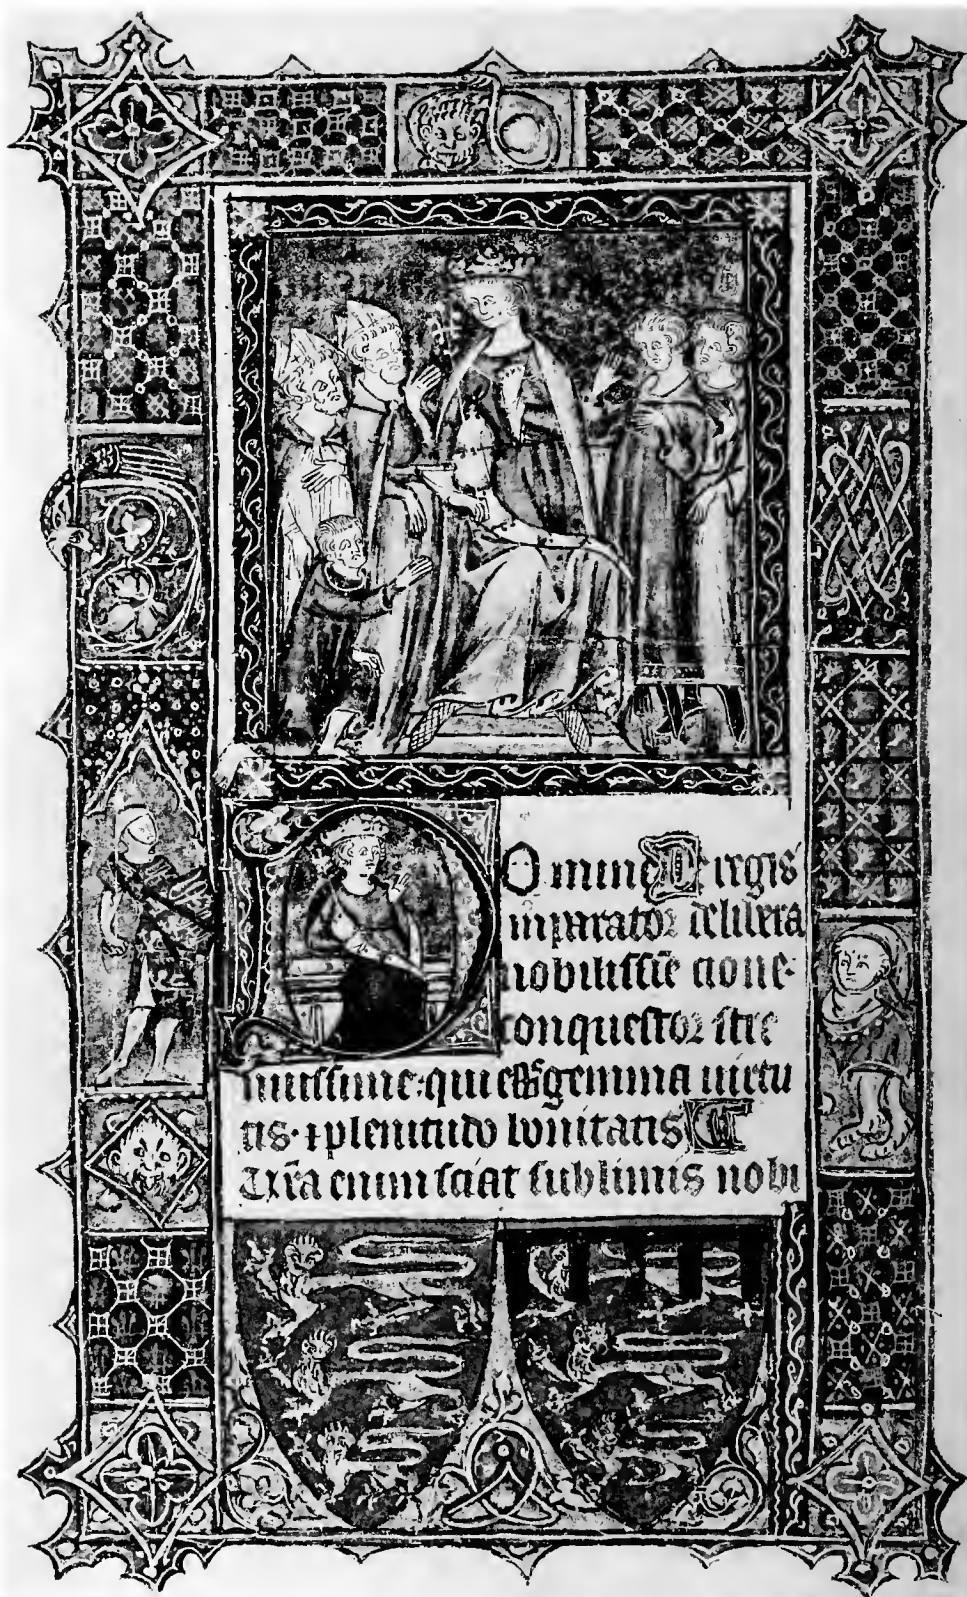 Domine De regis
imparator delibera
nobilissīe cione·
conquestor stre
nuissime· qui gemma uirtu
tis· ⁊ plenitudo bonitatis
enim sciat sublimis nobi